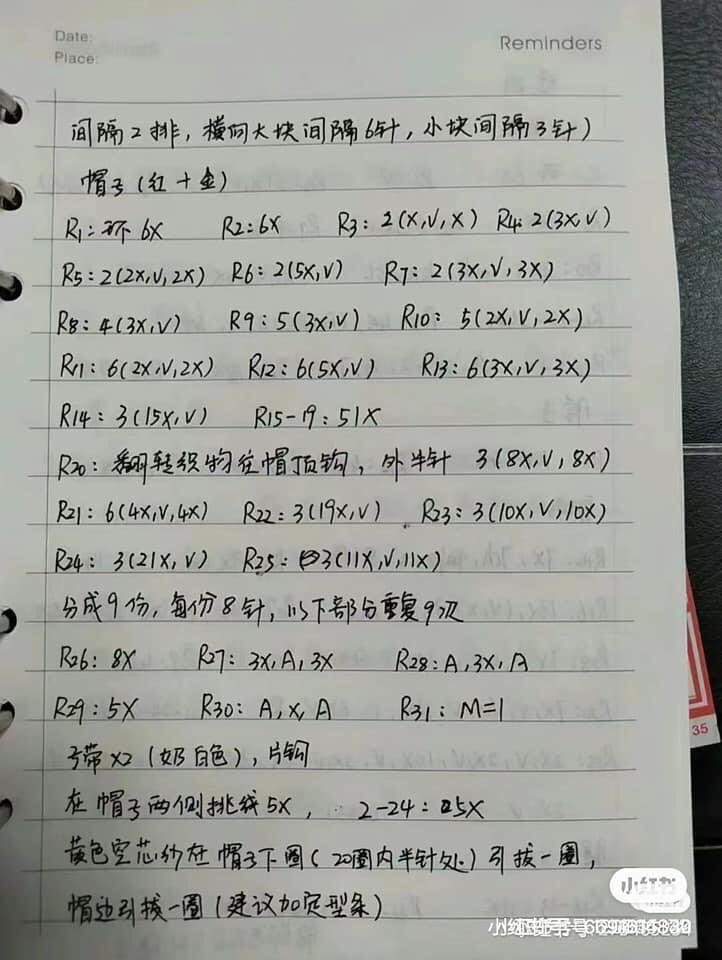 Date:
Place:
Reminders
间隔2排，横向大块间隔6针，小块间隔3针）
帽子（红+金）
R1：环6X R2：6X R3：2(X,V,X) R4：2(3X,V)
R5：2(2X,V,2X) R6：2(5X,V) R7：2(3X,V,3X)
R8：4(3X,V) R9：5(3X,V) R10：5(2X,V,2X)
R11：6(2X,V,2X) R12：6(5X,V) R13：6(3X,V,3X)
R14：3(15X,V) R15-19：51X
R20：翻转织物往帽顶钩，外半针 3(8X,V,8X)
R21：6(4X,V,4X) R22：3(19X,V) R23：3(10X,V,10X)
R24：3(21X,V) R25：3(11X,V,11X)
分成9份，每份8针，以下部分重复9次
R26：8X R27：3X,A,3X R28：A,3X,A
R29：5X R30：A,X,A R31：M=1
带X2（奶白色），片钩
在帽子两侧挑线5X，2-24：5X
黄色空芯纱在帽子下圈（20圈内半针处）引拔一圈，
帽边引拔一圈（建议加定型条）
35
小红书
小红书号